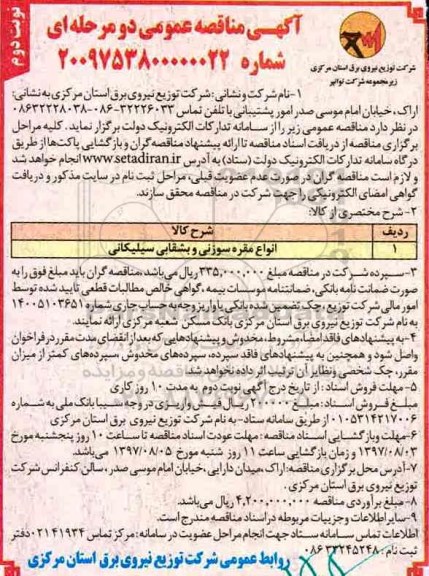 نوبت دوم
آگهی مناقصه عمومی دو مرحله ای
شماره ۲۰۰۹۷۵۳۸۰۰۰۰۰۰۲۲
شرکت توزیع نیروی برق استان مرکزی
زیرمجموعه شرکت توانیر
۱-نام شرکت و نشانی: شرکت توزیع نیروی برق استان مرکزی به نشانی:
اراک، خیابان امام موسی صدر امور پشتیبانی با تلفن تماس ۳۲۲۲۶۰۳۳-۰۸۶-۰۸۶۳۲۲۲۸۰۳۸
در نظر دارد مناقصه عمومی زیر را از سامانه تدارکات الکترونیک دولت برگزار نماید. کلیه مراحل
برگزاری مناقصه از دریافت اسناد مناقصه تا ارائه پیشنهاد مناقصه گران و بازگشایی پاکت‌ها از طریق
درگاه سامانه تدارکات الکترونیک دولت (ستاد) به آدرس www.setadiran.ir انجام خواهد شد
و لازم است مناقصه گران در صورت عدم عضویت قبلی، مراحل ثبت نام در سایت مذکور و دریافت
گواهی امضای الکترونیکی را جهت شرکت در مناقصه محقق سازند.
۲- شرح مختصری از کالا:
ردیف شرح کالا
۱ انواع مقره سوزنی و بشقابی سیلیکانی
۳-سپرده شرکت در مناقصه مبلغ ۳۳۵,۰۰۰,۰۰۰ ریال می‌باشد، مناقصه گران باید مبلغ فوق را به
صورت ضمانت نامه بانکی، ضمانتنامه موسسات بیمه، گواهی خالص مطالبات قطعی تایید شده توسط
امور مالی شرکت توزیع، چک تضمین شده بانکی یا واریز وجه به حساب جاری شماره ۱۴۰۰۵۱۰۳۶۵۱
به نام شرکت توزیع نیروی برق استان مرکزی بانک مسکن شعبه مرکزی ارائه نمایند.
۴-به پیشنهادهای فاقد امضا، مشروط، مخدوش و پیشنهادهایی که بعد از انقضای مدت مقرر در فراخوان
واصل شود و همچنین به پیشنهادهای فاقد سپرده، سپرده‌های مخدوش، سپرده‌های کمتر از میزان
مقرر، چک شخصی و نظایر آن ترتیب اثر داده نخواهد شد
۵- مهلت فروش اسناد: از تاریخ درج آگهی نوبت دوم به مدت ۱۰ روز کاری
مبلغ فروش اسناد: مبلغ ۲۰۰,۰۰۰ ریال فیش واریزی در وجه سیبا بانک ملی به شماره
۰۱۰۵۳۱۴۲۱۷۰۰۶ از طریق سامانه ستاد- به نام شرکت توزیع نیروی برق استان مرکزی
۶-مهلت و بازگشایی اسناد مناقصه: مهلت عودت اسناد مناقصه تا ساعت ۱۰ روز پنجشنبه مورخ
۱۳۹۷/۰۸/۰۳ و زمان بازگشایی ساعت ۱۱ روز شنبه مورخ ۱۳۹۷/۰۸/۰۵ می‌باشد.
۷-آدرس محل برگزاری مناقصه: اراک، میدان دارایی، خیابان امام موسی صدر، سالن کنفرانس شرکت
توزیع نیروی برق استان مرکزی.
۸- مبلغ برآوردی مناقصه ۴,۲۰۰,۰۰۰,۰۰۰ ریال می‌باشد.
۹-سایر اطلاعات و جزییات مربوطه در اسناد مناقصه مندرج است.
اطلاعات تماس سامانه ستاد جهت انجام مراحل عضویت در سامانه: مرکز تماس ۰۲۱۴۱۹۳۴ دفتر
ثبت نام: ۳۳۲۴۵۲۴۸ ۰۸۶
روابط عمومی شرکت توزیع نیروی برق استان مرکزی